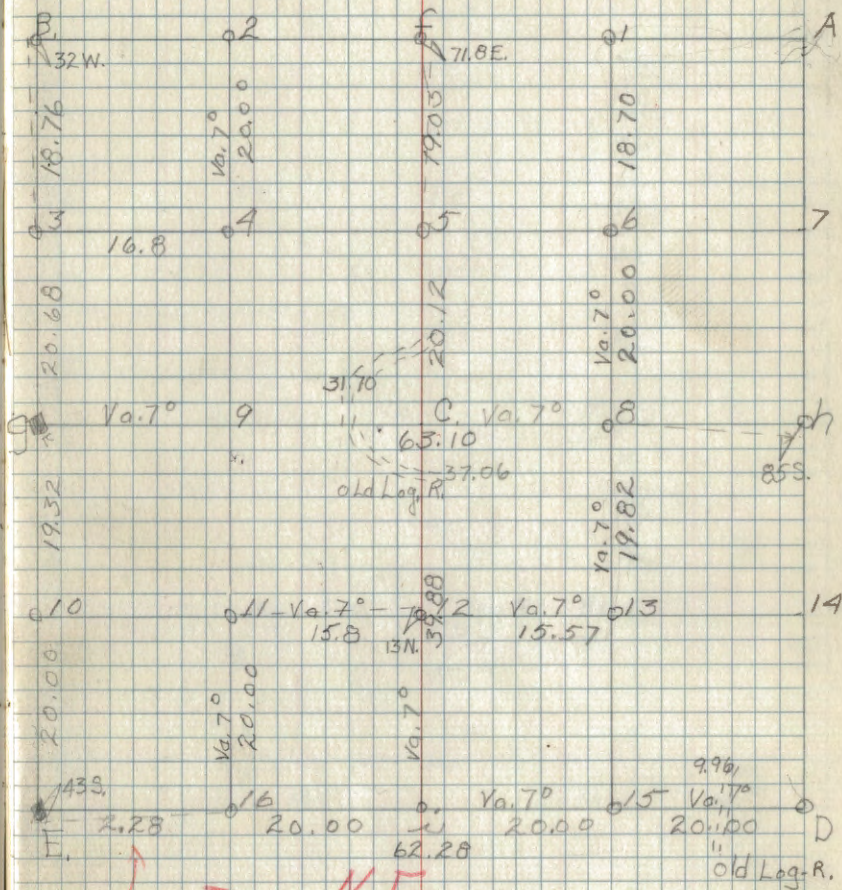 B. 2 1 A
32 W. 71.8 E.
18.76 Va. 7° 20.00 19.03 18.70
3 4 5 6 7
16.8
20.68 20.12 Va. 7° 20.00
31.70
g Va. 7° 9 C. Va. 7° 8 h
63.10
37.06 85 S.
old Log. R.
19.32 Va. 7° 19.82
10 11 Va. 7° 12 Va. 7° 13 14
15.8 13 N. 39.88 15.57
20.00 Va. 7° 20.00 Va. 7°
9.96
43 S. 16 Va. 7° 15 Va. 7°
E. 2.28 20.00 20.00 20.00 D
62.28
old Log-R.